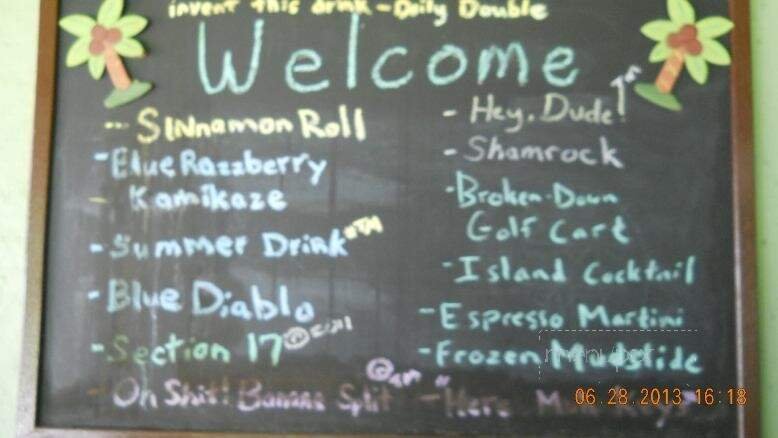 invent this drink - Daily Double
Welcome
- Sinnamon Roll
- Blue Razzberry
Kamikaze
- Summer Drink
- Blue Diablo
- Section 17
- Oh Shit! Banana Split
- Hey, Dude!
- Shamrock
- Broken-Down
Golf Cart
- Island Cocktail
- Espresso Martini
- Frozen Mudslide
06.28.2013 16:18